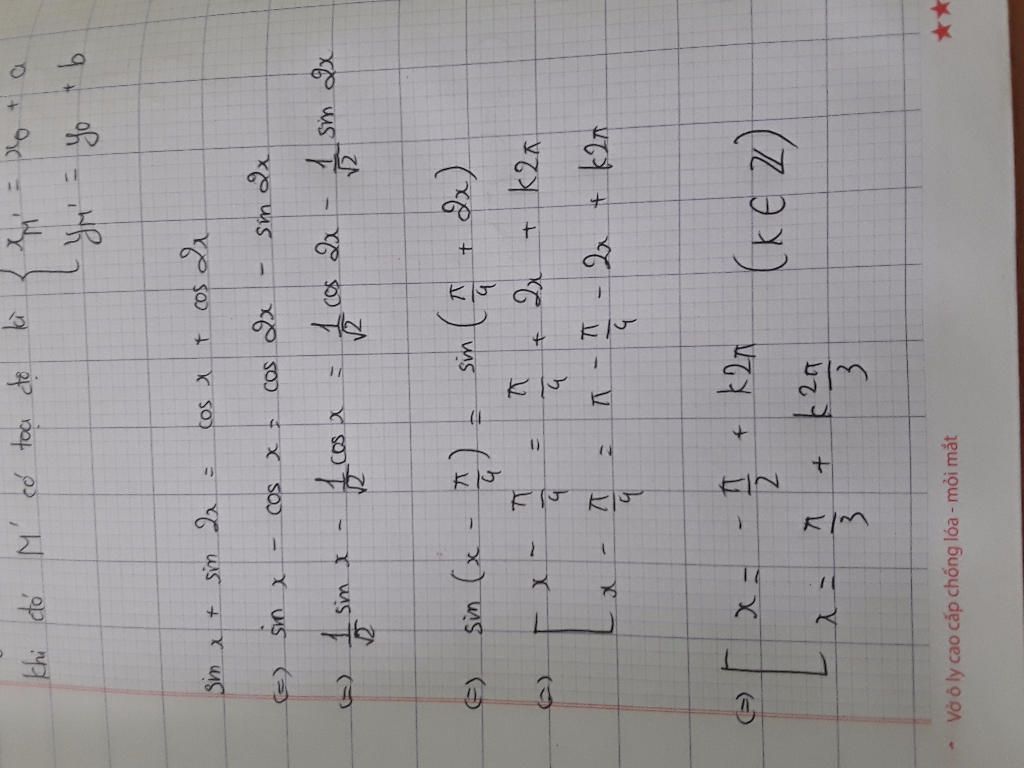 khi đó M' có toạ độ là { x_M' = x_0 + a
y_M' = y_0 + b
sin x + sin 2x = cos x + cos 2x
(=) sin x - cos x = cos 2x - sin 2x
(=) 1/√2 sin x - 1/√2 cos x = 1/√2 cos 2x - 1/√2 sin 2x
(=) sin (x - π/4) = sin (π/4 + 2x)
(=) [ x - π/4 = π/4 + 2x + k2π
x - π/4 = π - π/4 - 2x + k2π
(=) [ x = - π/2 + k2π (k ∈ ℤ)
x = π/3 + k2π/3
Vở ô ly cao cấp chống lóa - mỏi mắt